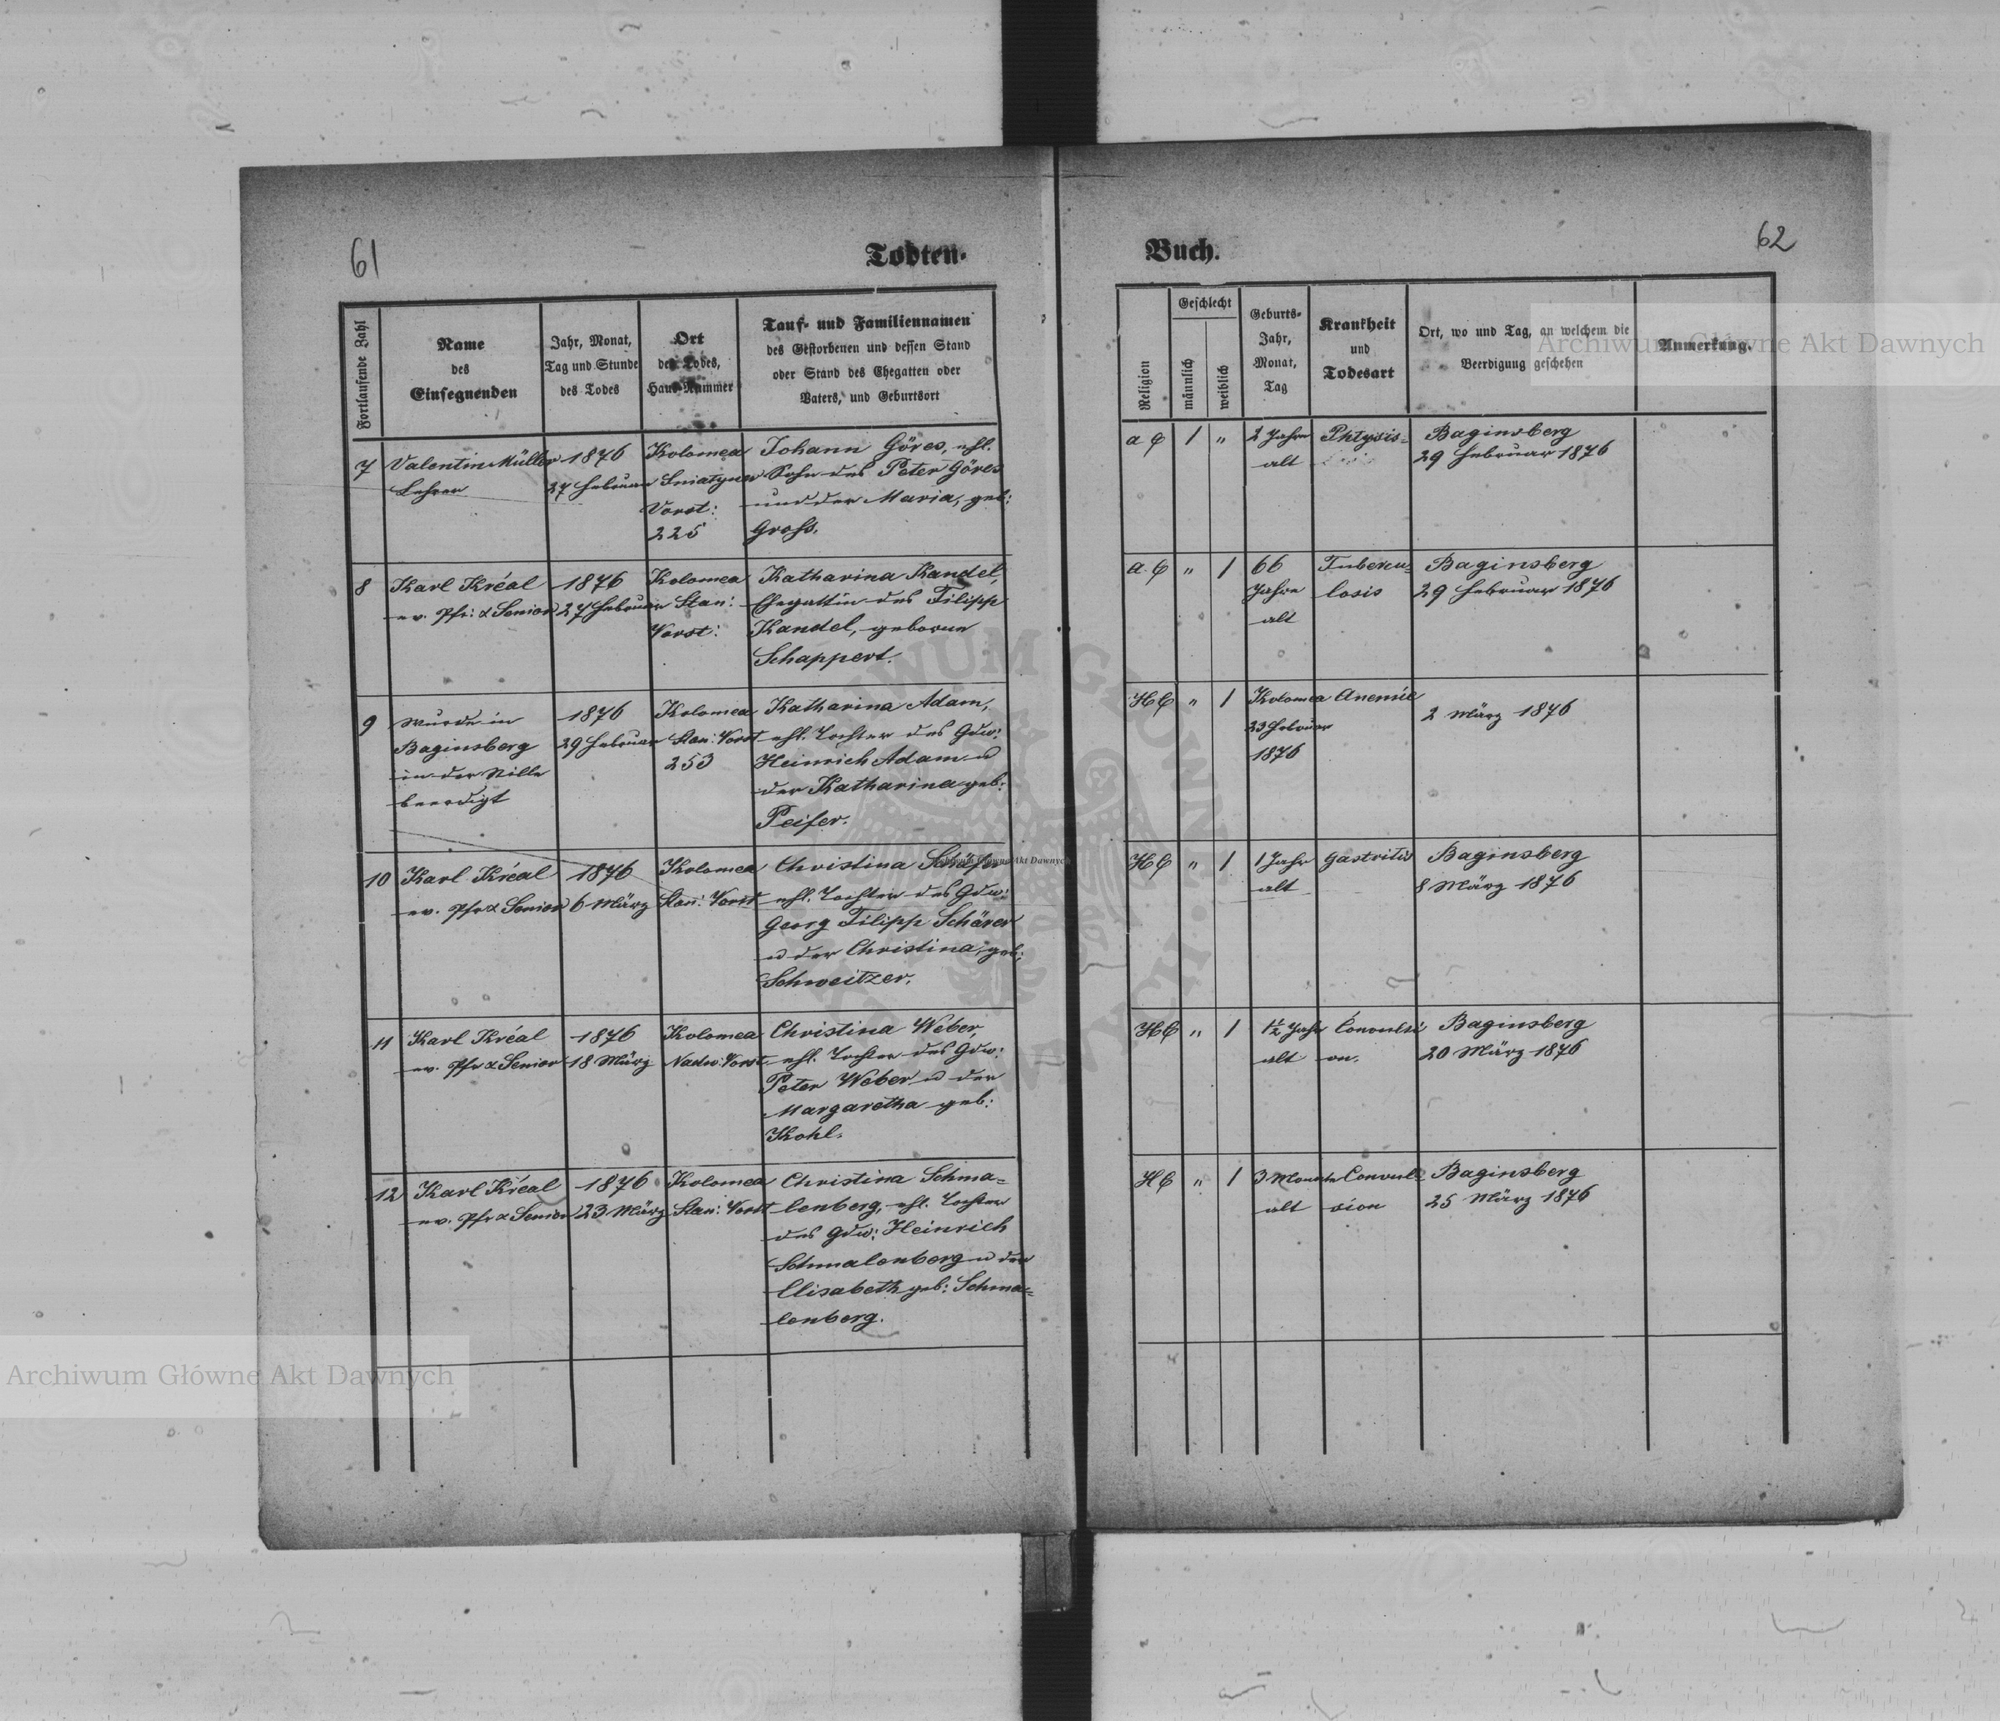 61
Todten-
Fortlaufende Zahl
Name
des
Einsegnenden
Jahr, Monat,
Tag und Stunde
des Todes
Ort
des Todes,
Haus-Nummer
Tauf- und Familiennamen
des Gestorbenen und dessen Stand
oder Stand des Ehegatten oder
Vaters, und Geburtsort
7
Valentin Müller
Lehrer
1876
27 Februar
Kolomea
Sniatyner
Vorst:
225
Johann Göres, ehl.
Sohn des Peter Göres
und der Maria, geb:
Gross.
8
Karl Kréal
ev. Pfr: & Senior
1876
27 Februar
Kolomea
Stan:
Vorst:
Katharina Kandel,
Ehegattin des Filipp
Kandel, geborne
Schappert.
9
wurde in
Baginsberg
in der Stille
beerdigt
1876
29 Februar
Kolomea
Stan: Vorst
253
Katharina Adam,
ehl. Tochter des Gdw:
Heinrich Adam u
der Katharina geb:
Peifer.
10
Karl Kréal
ev. Pfr & Senior
1876
6 März
Kolomea
Stan: Vorst
Christina
ehl. Tochter des Gdw:
Georg Filipp Schärer
u der Christina, geb:
Schweitzer.
11
Karl Kréal
ev. Pfr & Senior
1876
18 März
Kolomea
Nadw: Vorst
Christina Weber,
ehl. Tochter des Gdw:
Peter Weber u der
Margaretha geb:
Kohl.
12
Karl Kréal
ev. Pfr & Senior
1876
23 März
Kolomea
Stan: Vorst
Christina Schma=
lenberg, ehl. Tochter
des Gdw: Heinrich
Schmalenberg u der
Elisabeth geb: Schma=
lenberg.
62
Buch.
Religion
Geschlecht
männlich
weiblich
Geburts-
Jahr,
Monat,
Tag
Krankheit
und
Todesart
Ort, wo und Tag, an welchem die
Beerdigung geschehen
Anmerkung.
a C
1
"
2 Jahre
alt
Phtysis
Baginsberg
29 Februar 1876
a. C
"
1
66
Jahre
alt
Tubercu=
losis
Baginsberg
29 Februar 1876
H C
"
1
Kolomea
23 Februar
1876
Anemie
2 März 1876
H C
"
1
1 Jahr
alt
Gastritis
Baginsberg
8 März 1876
H C
"
1
1½ Jahr
alt
Convulsi
on.
Baginsberg
20 März 1876
H C
"
1
3 Monate
alt
Convul=
sion
Baginsberg
25 März 1876
Archiwum Główne Akt Dawnych
Archiwum Główne Akt Dawnych
Archiwum Główne Akt Dawnych